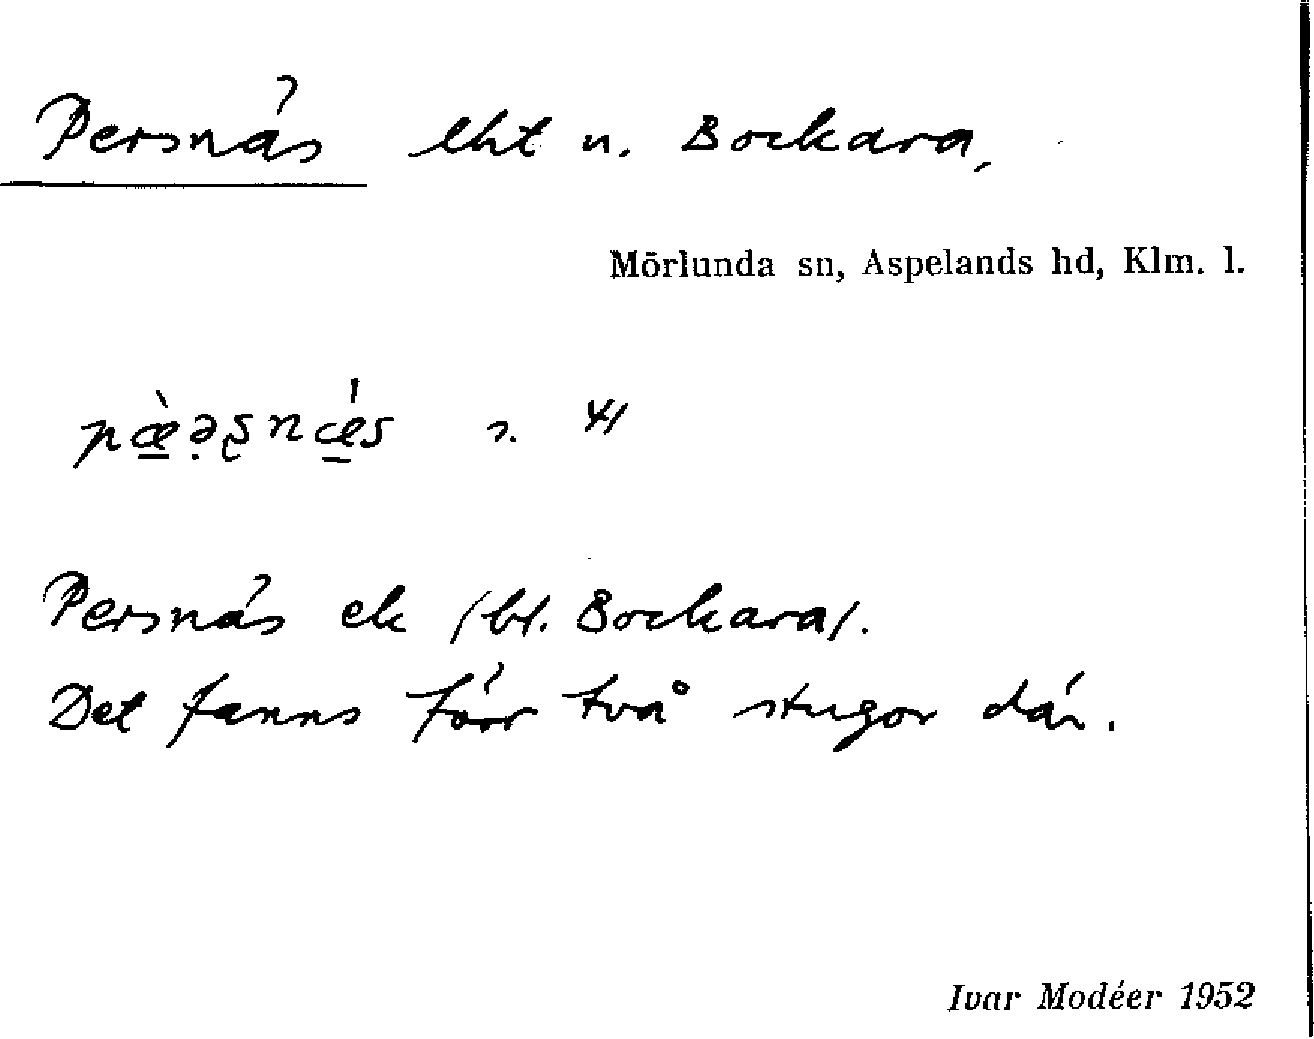 Persnäs lht u. Bockara,
Mörlunda sn, Aspelands hd, Klm. l.
pæ̀ə̣ʂnǽs
Persnäs ek (bl. Bockara).
Det fanns förr två stugor där.
Ivar Modéer 1952